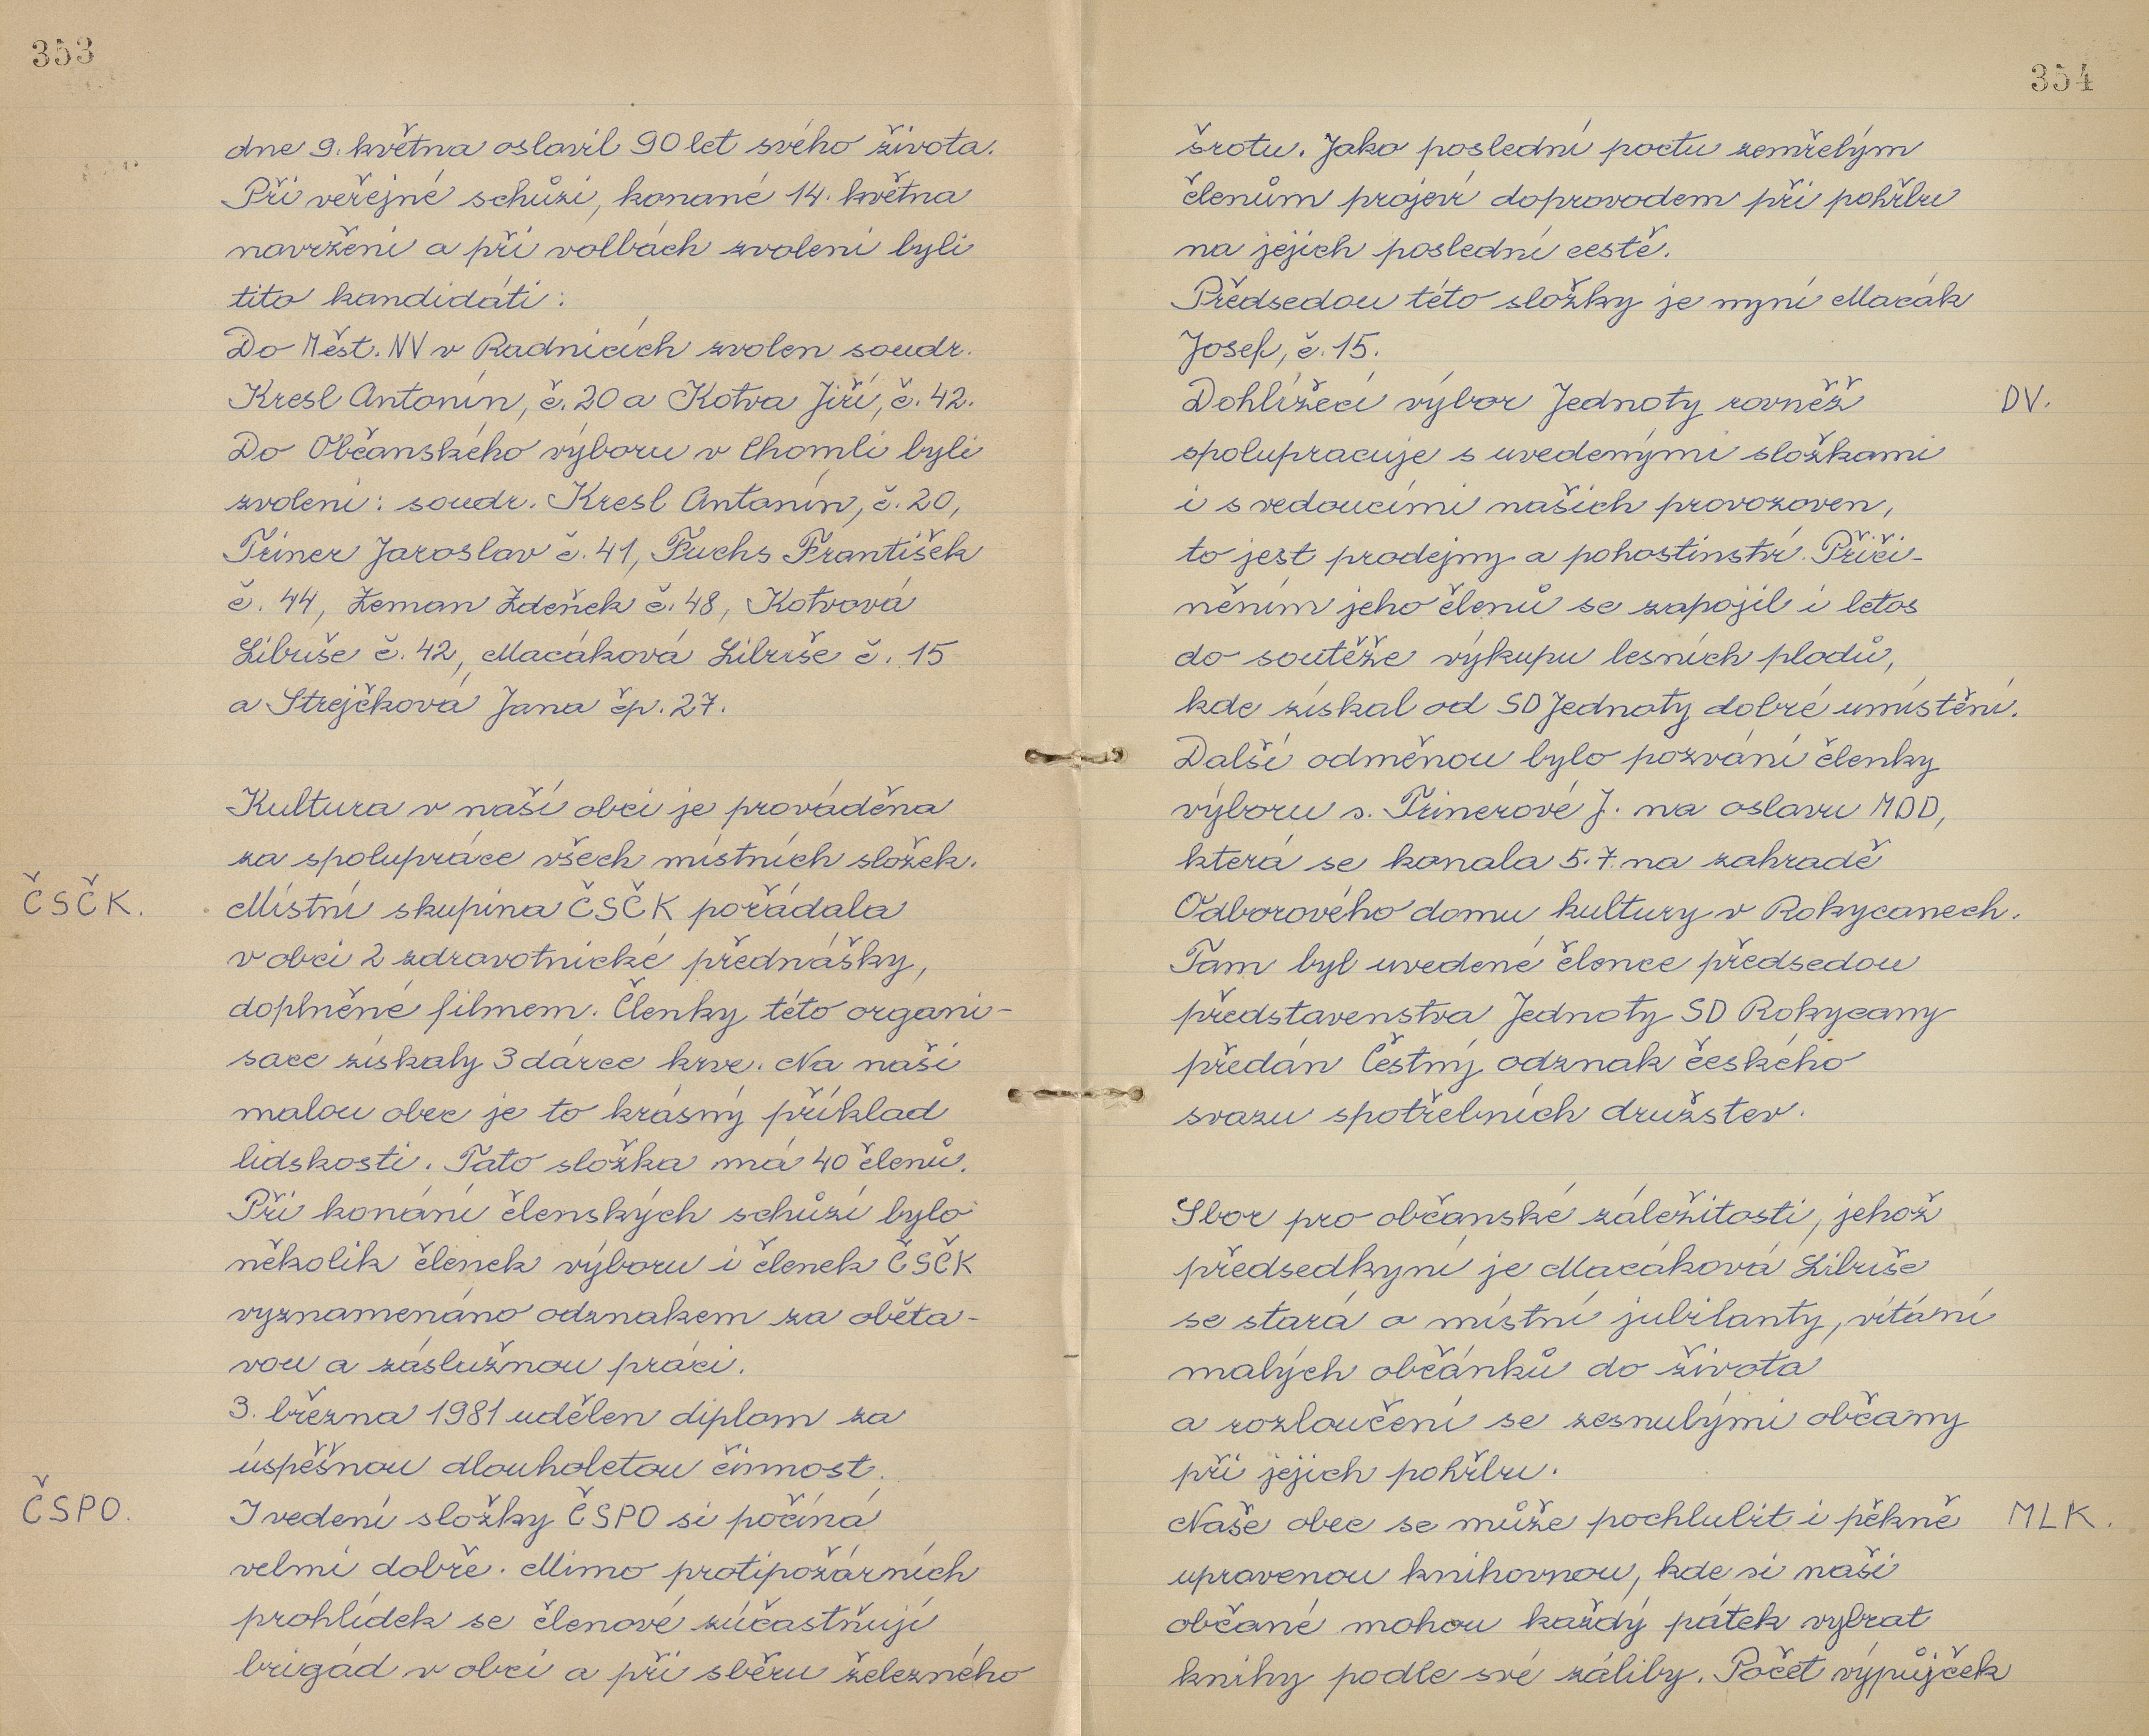 353
dne 9. května oslavil 90 let svého života.
Při veřejné schůzi, konané 14. května
navrženi a při volbách zvoleni byli
tito kandidáti:
Do Měst. NV v Radnicích zvolen soudr.
Kresl Antonín, č. 20 a Kotva Jiří, č. 42.
Do Občanského výboru v Chomli byli
zvoleni: soudr. Kresl Antonín, č. 20,
Triner Jaroslav č. 41, Fuchs František
č. 44, Zeman Zdeněk č. 48, Kotvová
Libuše č. 42, Macáková Libuše č. 15
a Strejčková Jana čp. 27.
Kultura v naší obci je prováděna
za spolupráce všech místních složek.
ČSČK. Místní skupina ČSČK pořádala
v obci 2 zdravotnické přednášky,
doplněné filmem. Členky této organi-
sace získaly 3 dárce krve. Na naši
malou obec je to krásný příklad
lidskosti. Tato složka má 40 členů.
Při konání členských schůzí bylo
několik členek výboru i členek ČSČK
vyznamenáno odznakem za oběta-
vou a záslužnou práci.
3. března 1981 udělen diplom za
úspěšnou dlouholetou činnost.
ČSPO. I vedení složky ČSPO si počíná
velmi dobře. Mimo protipožárních
prohlídek se členové zúčastňují
brigád v obci a při sběru železného
354
šrotu. Jako poslední poctu zemřelým
členům projeví doprovodem při pohřbu
na jejich poslední cestě.
Předsedou této složky je nyní Macák
Josef, č. 15.
Dohlížecí výbor Jednoty rovněž DV.
spolupracuje s uvedenými složkami
i s vedoucími našich provozoven,
to jest prodejny a pohostinství. Přiči-
něním jeho členů se zapojil i letos
do soutěže výkupu lesních plodů,
kde získal od SD Jednoty dobré umístění.
Další odměnou bylo pozvání členky
výboru s. Trinerové J. na oslavu MDD,
která se konala 5. 7. na zahradě
Odborového domu kultury v Rokycanech.
Tam byl uvedené člence předsedou
představenstva Jednoty SD Rokycany
předán Čestný odznak českého
svazu spotřebních družstev.
Sbor pro občanské záležitosti, jehož
předsedkyní je Macáková Libuše
se stará o místní jubilanty, vítání
malých občánků do života
a rozloučení se zesnulými občany
při jejich pohřbu.
Naše obec se může pochlubit i pěkně MLK.
upravenou knihovnou, kde si naši
občané mohou každý pátek vybrat
knihy podle své záliby. Počet výpůjček